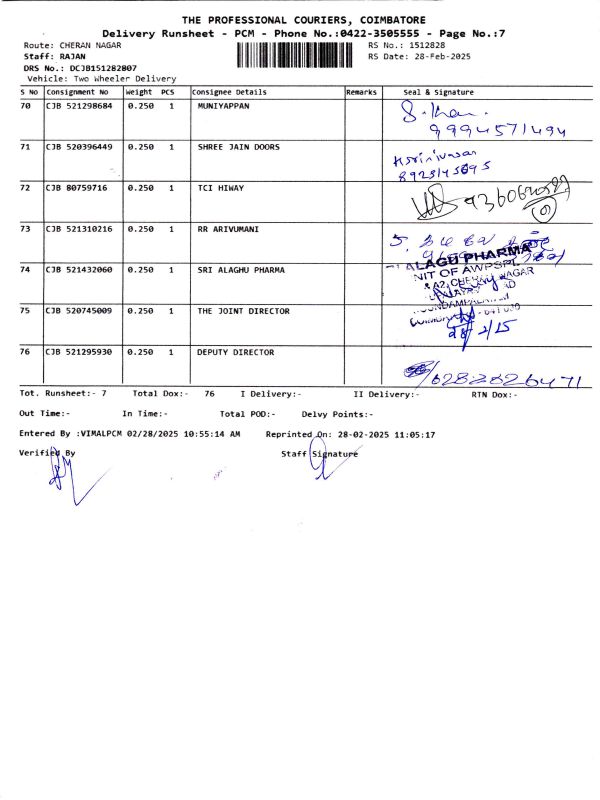 THE PROFESSIONAL COURIERS, COIMBATORE
Delivery Runsheet - PCM - Phone No.:0422-3505555 - Page No.:7
Route: CHERAN NAGAR RS No.: 1512828
Staff: RAJAN RS Date: 28-Feb-2025
DRS No.: DCJB151282807
Vehicle: Two Wheeler Delivery
S No Consignment No Weight PCS Consignee Details Remarks Seal & Signature
70 CJB 521298684 0.250 1 MUNIYAPPAN
9994571494
71 CJB 520396449 0.250 1 SHREE JAIN DOORS
Ksrinivasan
72 CJB 80759716 0.250 1 TCI HIWAY
73 CJB 521310216 0.250 1 RR ARIVUMANI
74 CJB 521432060 0.250 1 SRI ALAGHU PHARMA
ALAGU PHARMA
NIT OF AWPSPL
& A2, CHERAN NAGAR
75 CJB 520745009 0.250 1 THE JOINT DIRECTOR
76 CJB 521295930 0.250 1 DEPUTY DIRECTOR
6282826471
Tot. Runsheet:- 7 Total Dox:- 76 I Delivery:- II Delivery:- RTN Dox:-
Out Time:- In Time:- Total POD:- Delvy Points:-
Entered By :VIMALPCM 02/28/2025 10:55:14 AM Reprinted On: 28-02-2025 11:05:17
Verified By Staff Signature